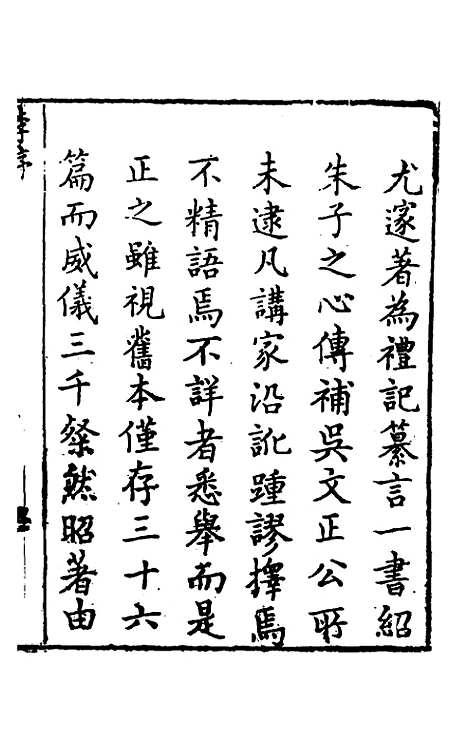 尤邃著為禮記纂言一書紹
朱子之心傳補吳文正公所
未逮凡講家沿訛踵謬擇焉
不精語焉不詳者悉舉而是
正之雖視舊本僅存三十六
篇而威儀三千粲然昭著由